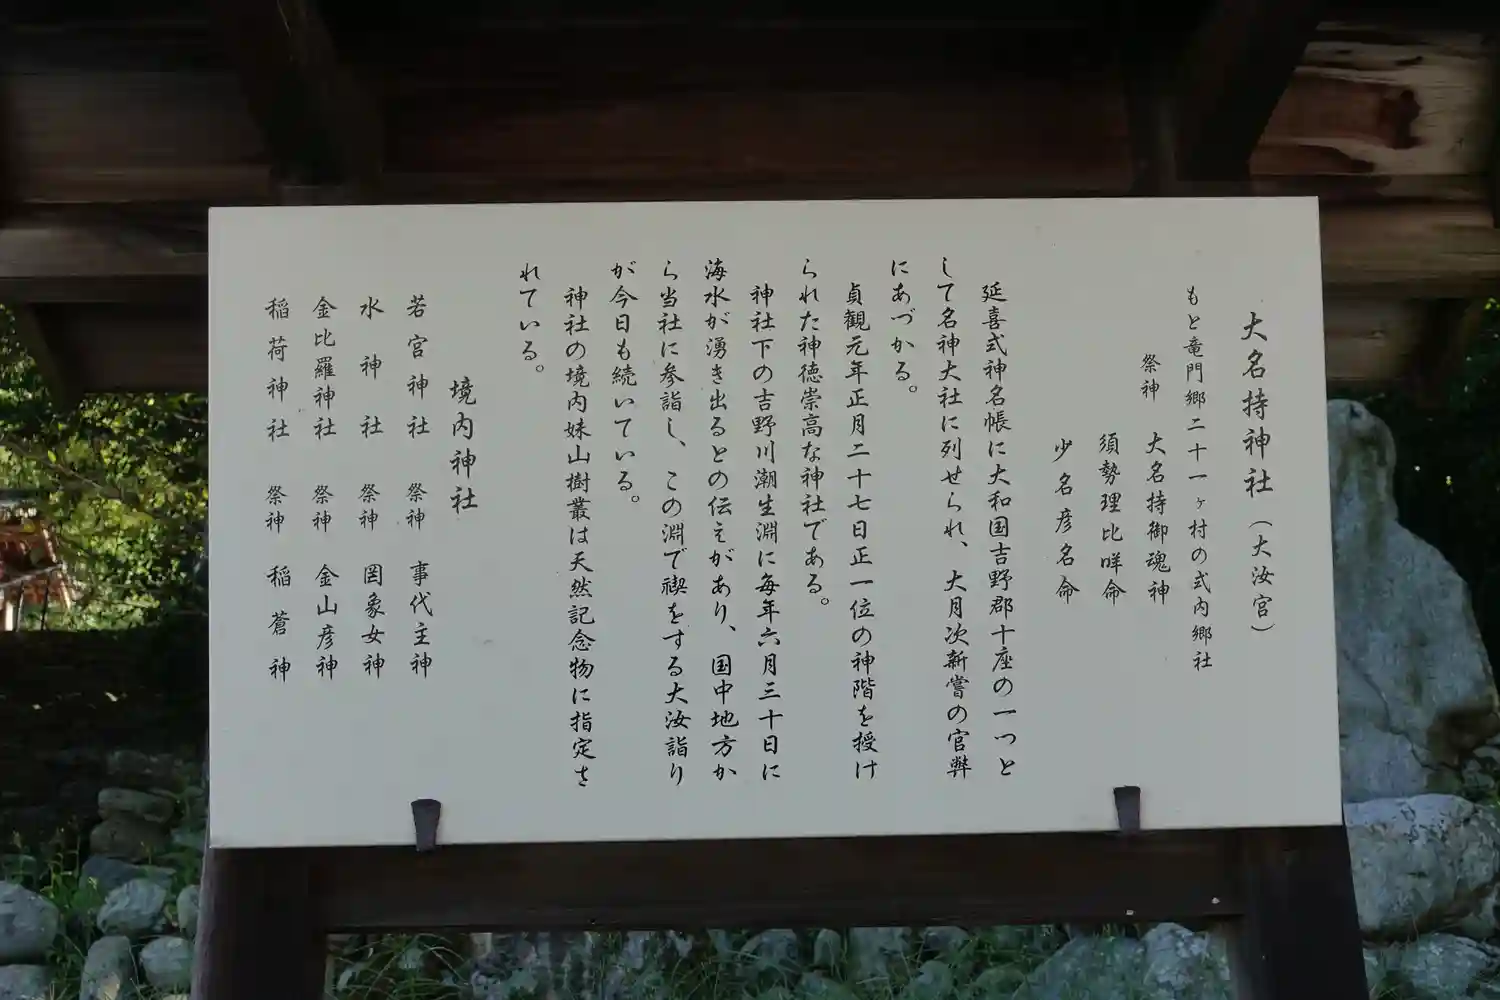 大名持神社（大汝宮）
もと竜門郷二十一ヶ村の式内郷社
祭神　大名持御魂神
須勢理比咩命
少名彦名命
延喜式神名帳に大和国吉野郡十座の一つと
して名神大社に列せられ、大月次新嘗の官弊
にあづかる。
貞観元年正月二十七日正一位の神階を授け
られた神徳崇高な神社である。
神社下の吉野川潮生淵に毎年六月三十日に
海水が湧き出るとの伝えがあり、国中地方か
ら当社に参詣し、この淵で禊をする大汝詣り
が今日も続いている。
神社の境内妹山樹叢は天然記念物に指定さ
れている。
境内神社
若宮神社　祭神　事代主神
水神社　祭神　罔象女神
金比羅神社　祭神　金山彦神
稲荷神社　祭神　稲蒼神